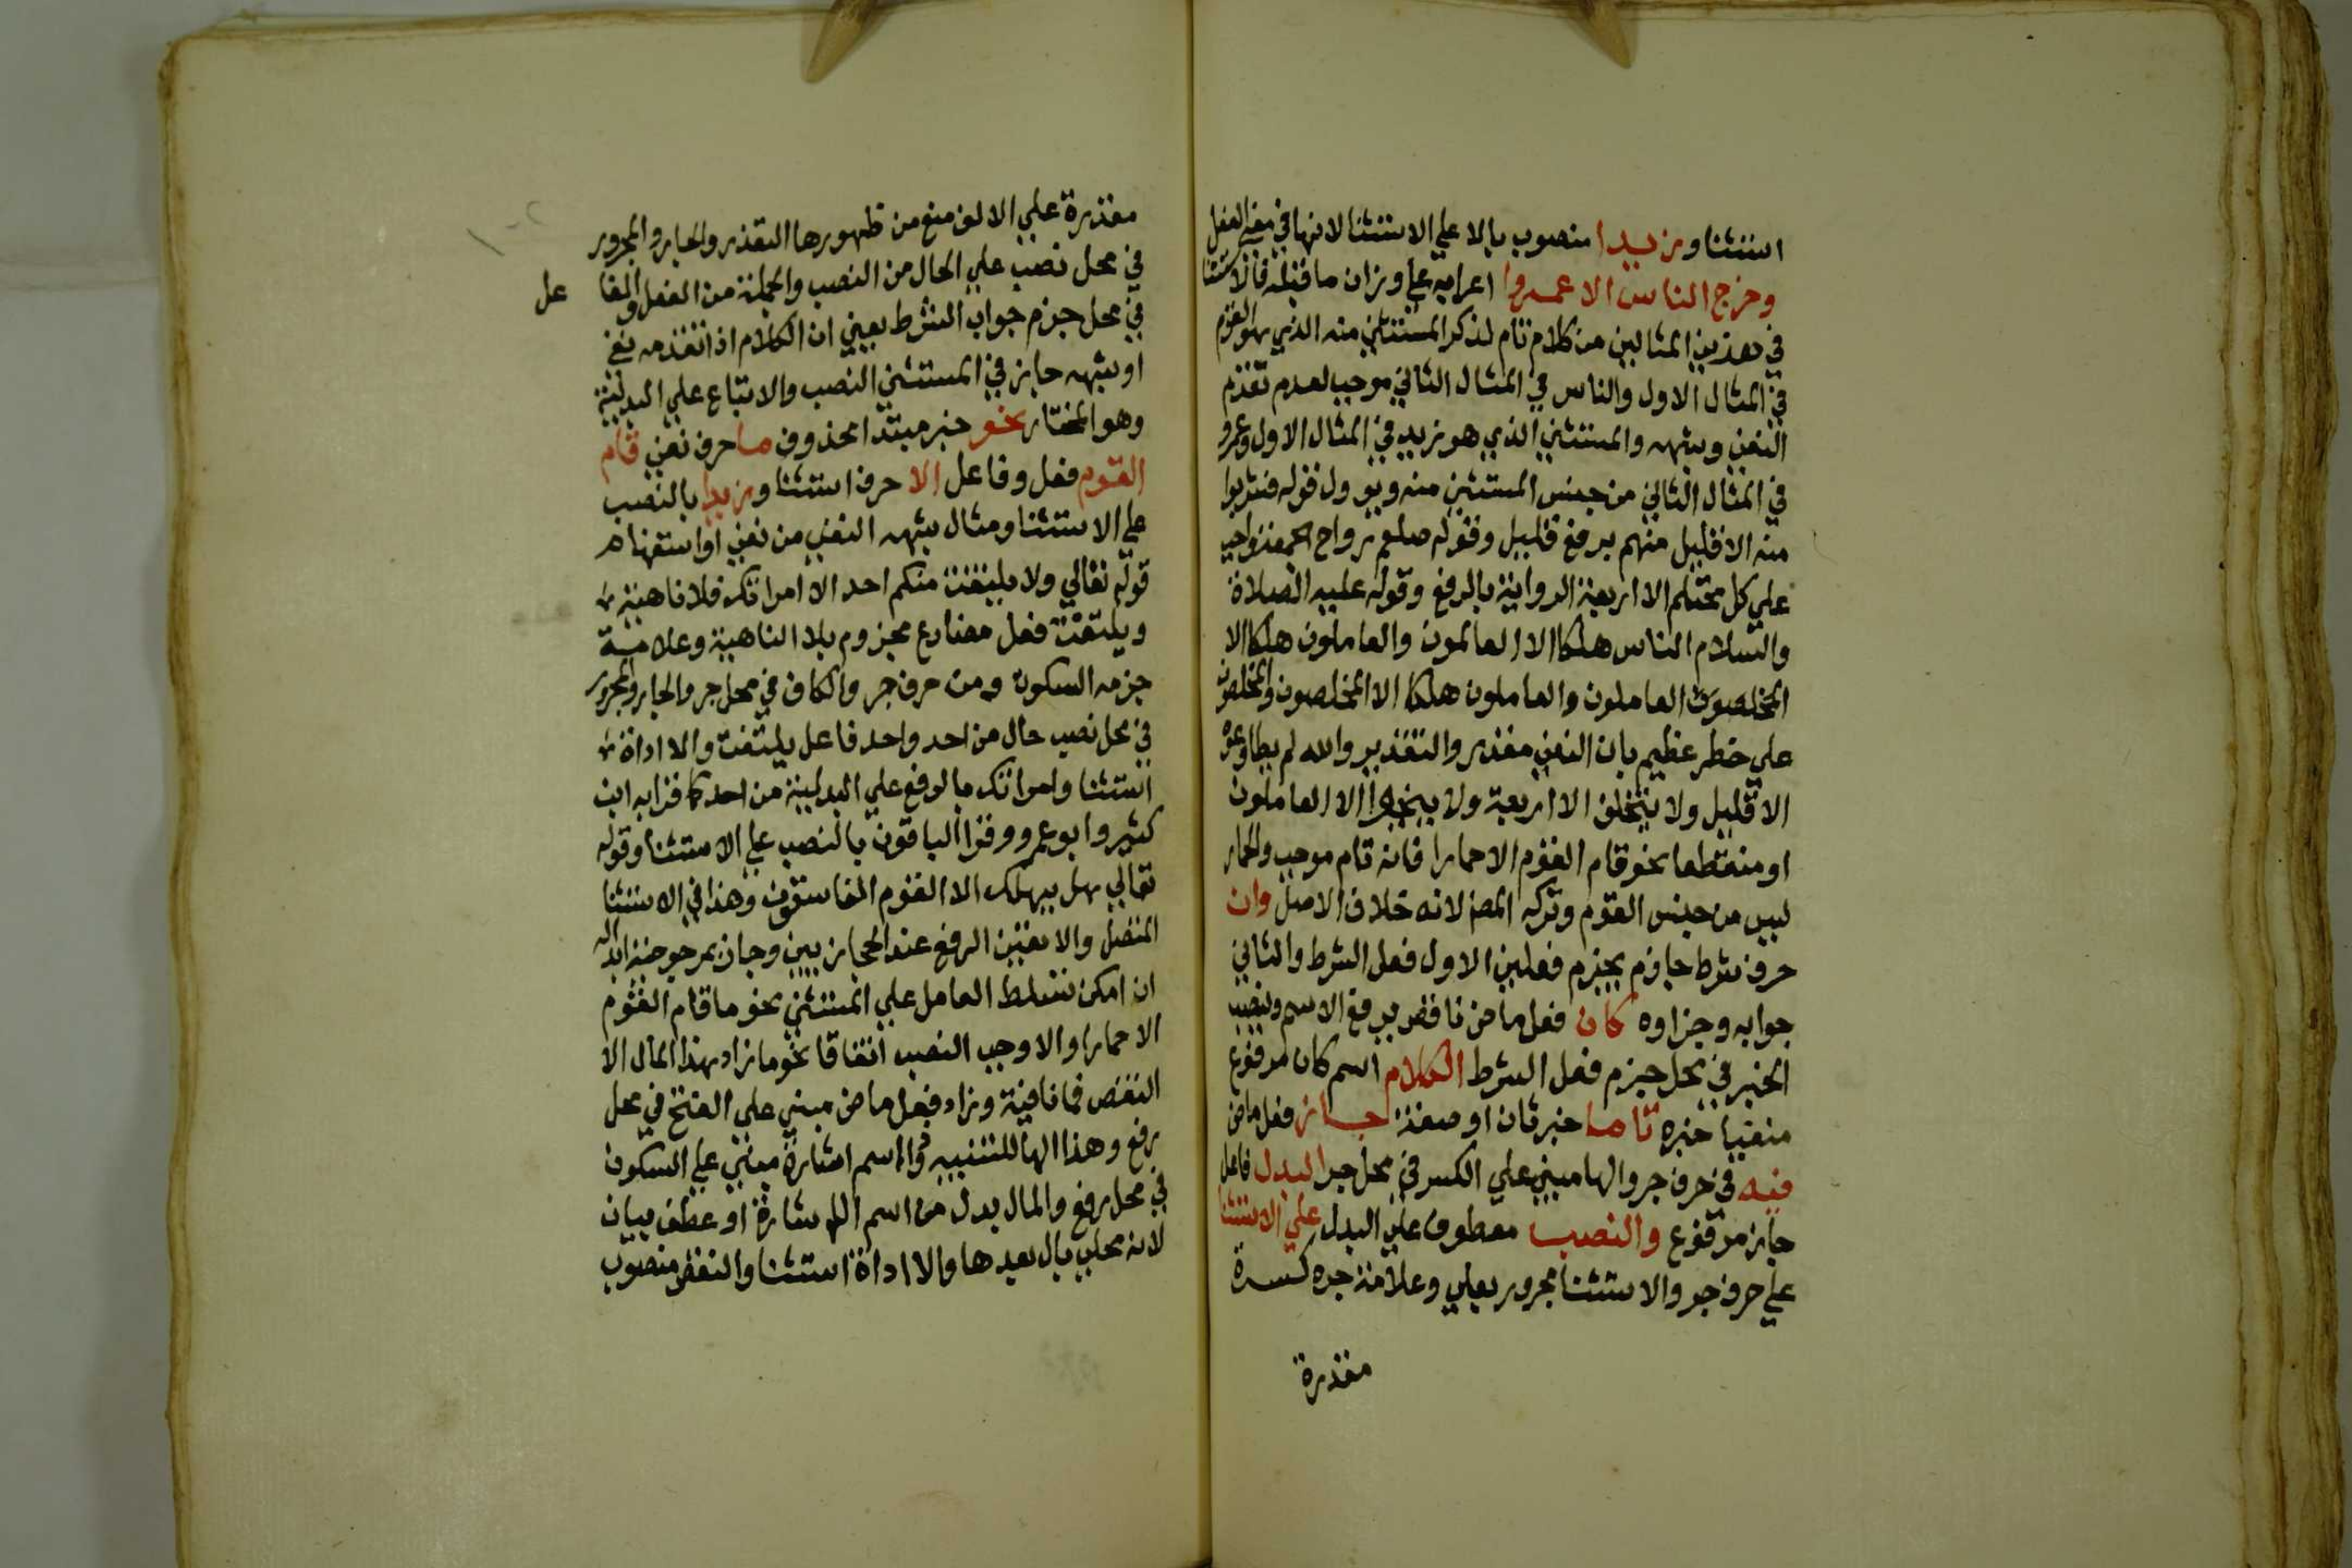 استثنا وزيدا منصوب بالا على الاستثنا لانها في معنى الفعل
وخرج الناس الا عمروا اعرابه على وزان ما قبله فالاستثنا
في هذين المثالين من كلام تام لذكر المستثنى منه الذي هو القوم
في المثال الاول والناس في المثال الثاني موجب لعدم تقدم
النفي وشبهه والمستثنى الذي هو زيد في المثال الاول وعمرو
في المثال الثاني من جنس المستثنى منه ويوول قوله فشربوا
منه الا قليل منهم برفع قليل وقوله صلعم رواح الجمعة واجب
على كل محتلم الا اربعة الرواية بالرفع وقوله عليه الصلاة
والسلام الناس هلكا الا العالمون والعاملون هلكا الا
المخلصون العاملون والعاملون هلكا الا المخلصون والمخلصون
على خطر عظيم بان النفي مقدر والتقدير والله لم يطاوعوه
الا قليل ولا يتخلف الا اربعة ولا ينجوا الا العاملون
او منقطعا نحو قام القوم الا حمارا فانه قام موجب والحمار
ليس من جنس القوم وتركه المص لانه خلاف الاصل وان
حرف شرط جازم يجزم فعلين الاول فعل الشرط والثاني
جوابه وجزاوه كان فعل ماض ناقص يرفع الاسم وينصب
الخبر في محل جزم فعل الشرط الكلام اسم كان مرفوع
منفيا خبره تاما خبر ثان او صفة جاز فعل ماض
فيه في حرف جر والها مبني على الكسر في محل جر البدل فاعل
جاز مرفوع والنصب معطوف على البدل على الاستثنا
على حرف جر والاستثنا مجرور بعلى وعلامة جره كسرة
مقدرة
مقدرة على الالف منع من ظهورها التعذر والجار والمجرور
في محل نصب على الحال من النصب والجملة من الفعل والفا عل
في محل جزم جواب الشرط يعني ان الكلام اذا تقدمه نفي
او شبهه جاز في المستثنى النصب والاتباع على البدلية
وهو المختار نحو خبر مبتدا محذوف ما حرف نفي قام
القوم فعل وفاعل الا حرف استثنا وزيدا بالنصب
على الاستثنا ومثال شبهه النفي من نفي او استفهام
قوله تعالي ولا يلتفت منكم احد الا امراتك فلا ناهية
ويلتفت فعل مضارع مجزوم بلا الناهية وعلامة
جزمه السكون ومن حرف جر والكاف في محل جر والجار والمجرور
في محل نصب حال من احد واحد فاعل يلتفت والا اداة
استثنا وامراتك بالرفع على البدلية من احد كما قرا به ابن
كثير وابو عمرو وقرا الباقون بالنصب على الاستثنا وقوله
تعالي هل يهلك الا القوم الفاسقون وهذا في الاستثنا
المتصل والا يعتين الرفع عند الحجازيين وجاز بمرجوحية ابداله
ان امكن تسلط العامل على المستثنى نحو ما قام القوم
الا حمارا والا وجب النصب اتفاقا نحو ما زاد هذا المال الا
النقص فما نافية وزاد فعل ماض مبني على الفتح في محل
رفع وهذا الها للتنبيه وذا اسم اشارة مبني على السكون
في محل رفع والمال بدل من اسم الاشارة او عطف بيان
لانه محلى بال بعدها والا اداة استثنا والنقص منصوب